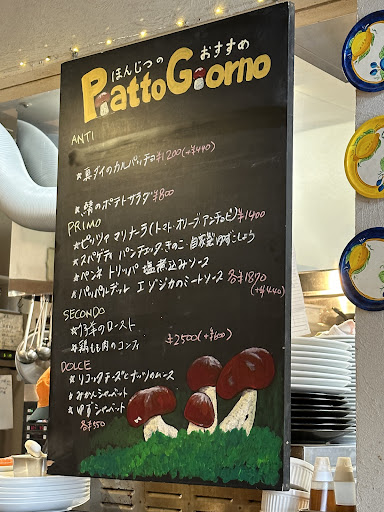 ほんじつの おすすめ
Piatto Giorno
ANTI
*真ダイのカルパッチョ¥1200(+¥440)
*鯖のポテトサラダ¥800
PRIMO
*ピッツァ マリナーラ(トマト・オリーブ・アンチョビ)¥1400
*スパゲティ パンチェッタ、きのこ・自家製ゆずこしょう
*パンネ トリッパ 塩煮込みソース
*パッパルデッレ エゾジカのミートソース 各¥1870
(+¥440)
SECONDO
*仔羊のロースト
*鶏もも肉のコンフィ ¥2500(+¥600)
DOLCE
*リコッタチーズとナッツのムース
*みかんシャーベット
*ゆずシャーベット
各¥550